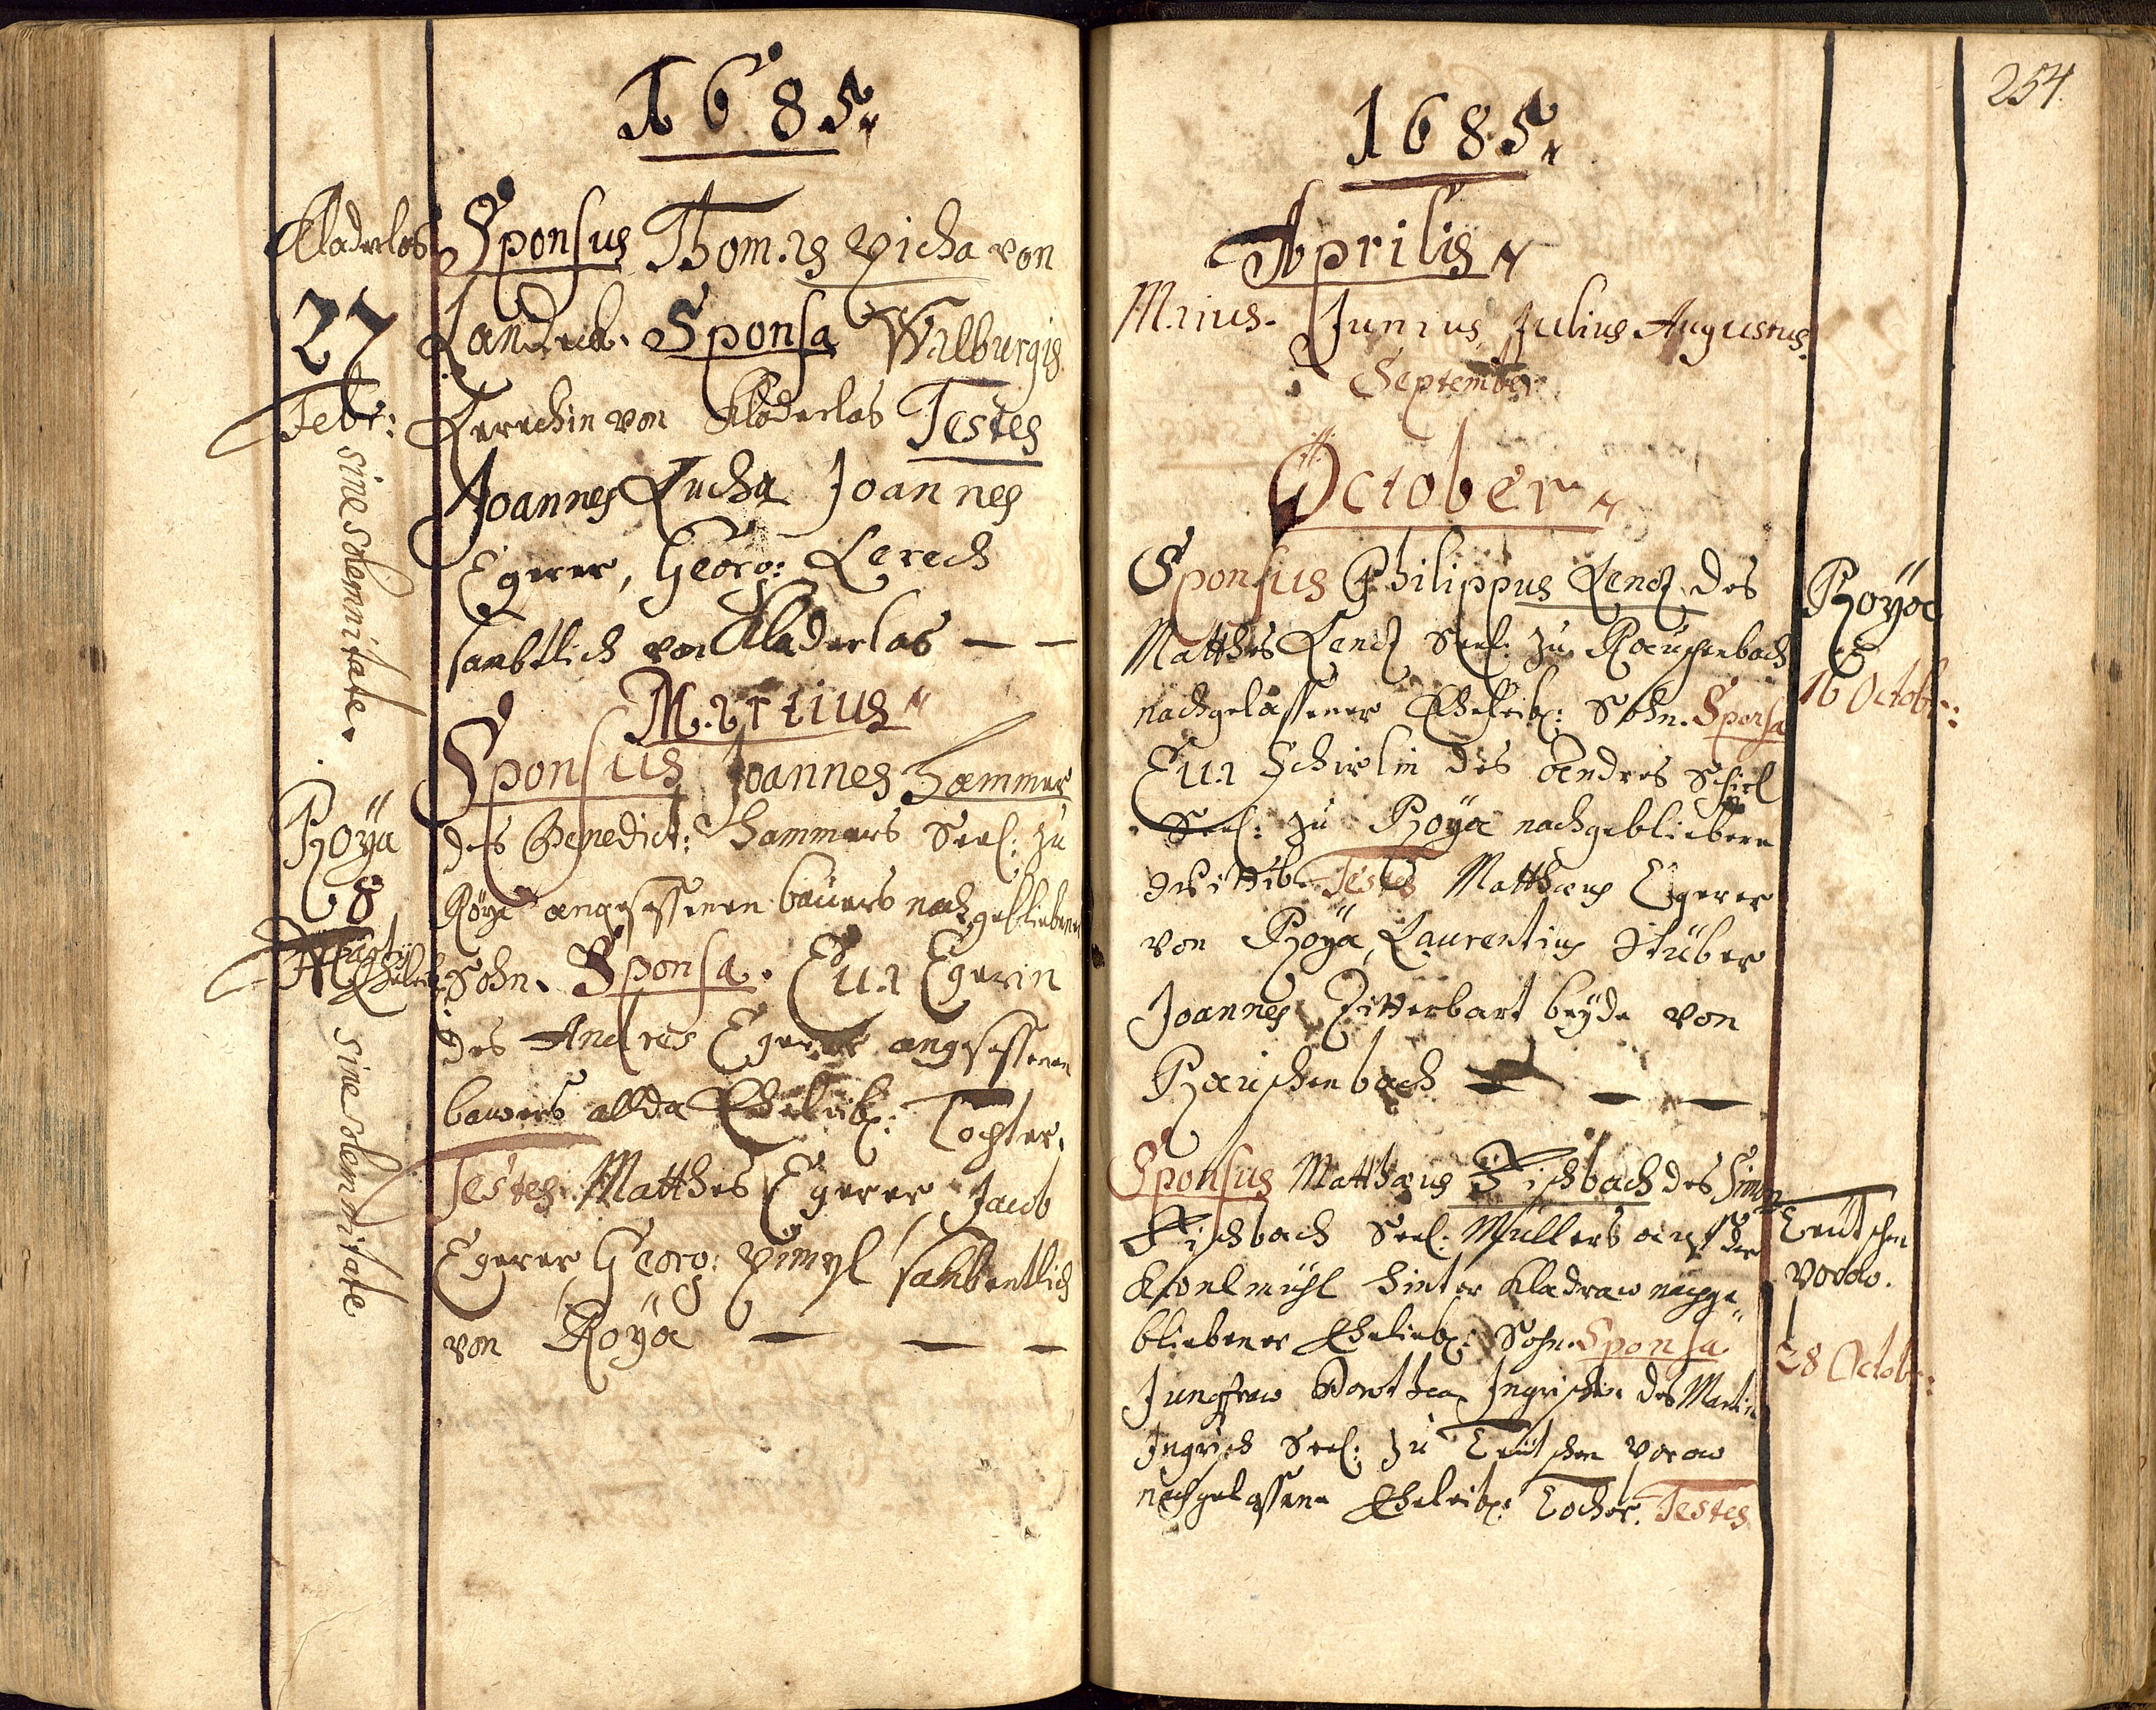 1685
Kladerlas
27
Febr:
sine solemnitate.
Sponsus Thomas Picha von
Landeck. Sponsa Walburgis
Lerechin von Kladerlas Testes
Joannes Lucha Joannes
Egerer, Georg: Lerech
sambtlich von Kladerlas — —
Martius
Roÿa
8
Martÿ
sine solemnitate
Sponsus Joannes Hammer
des Benedict: Hammers Seel: zu
Roÿa angesessenen bauers nachgebliebener
Sohn. Sponsa. Eua Egerin
des Andres Egerer angesessenen
bawers allda Eheleibl: Tochter.
Testes. Matthes Egerer, Jacob
Egerer, Georg: sambentlich
von Roÿa — — —
254.
1685
Aprilis
Maius. Junius, Julius Augustus.
September
October
Roÿa
16 Octobr:
Sponsus Philippus Lenck des
Matthes Lenck Seel: zu Rauschenbach
nachgelassener Eheleibl: Sohn. Sponsa
Eua Schirlin des Andres Schirl
Seel: zu Roÿa nachgebliebene
Wittib. Testes Matthæus Egerer
von Roÿa, Laurentius Stüber
Joannes Zitterbart beÿde von
Rauschenbach — — —
Teütschen
Voraw.
28 Octobr:
Sponsus Matthæus Fischbach des Simon
Fischbach Seel: Müllers auf der
hinter Kladraw nachge-
bliebener Eheleibl: Sohn. Sponsa
Jungfraw Dorothea Ingrischin des Martin
Ingrisch Seel: zu Teütschen Voraw
nachgelassene Eheleibl: Tochter. Testes